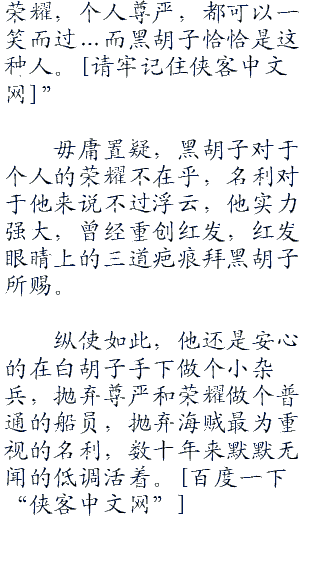 荣耀，个人尊严，都可以一
笑而过...而黑胡子恰恰是这
种人。[请牢记住侠客中文
网]”
毋庸置疑，黑胡子对于
个人的荣耀不在乎，名利对
于他来说不过浮云，他实力
强大，曾经重创红发，红发
眼睛上的三道疤痕拜黑胡子
所赐。
纵使如此，他还是安心
的在白胡子手下做个小杂
兵，抛弃尊严和荣耀做个普
通的船员，抛弃海贼最为重
视的名利，数十年来默默无
闻的低调活着。[百度一下
“侠客中文网”]